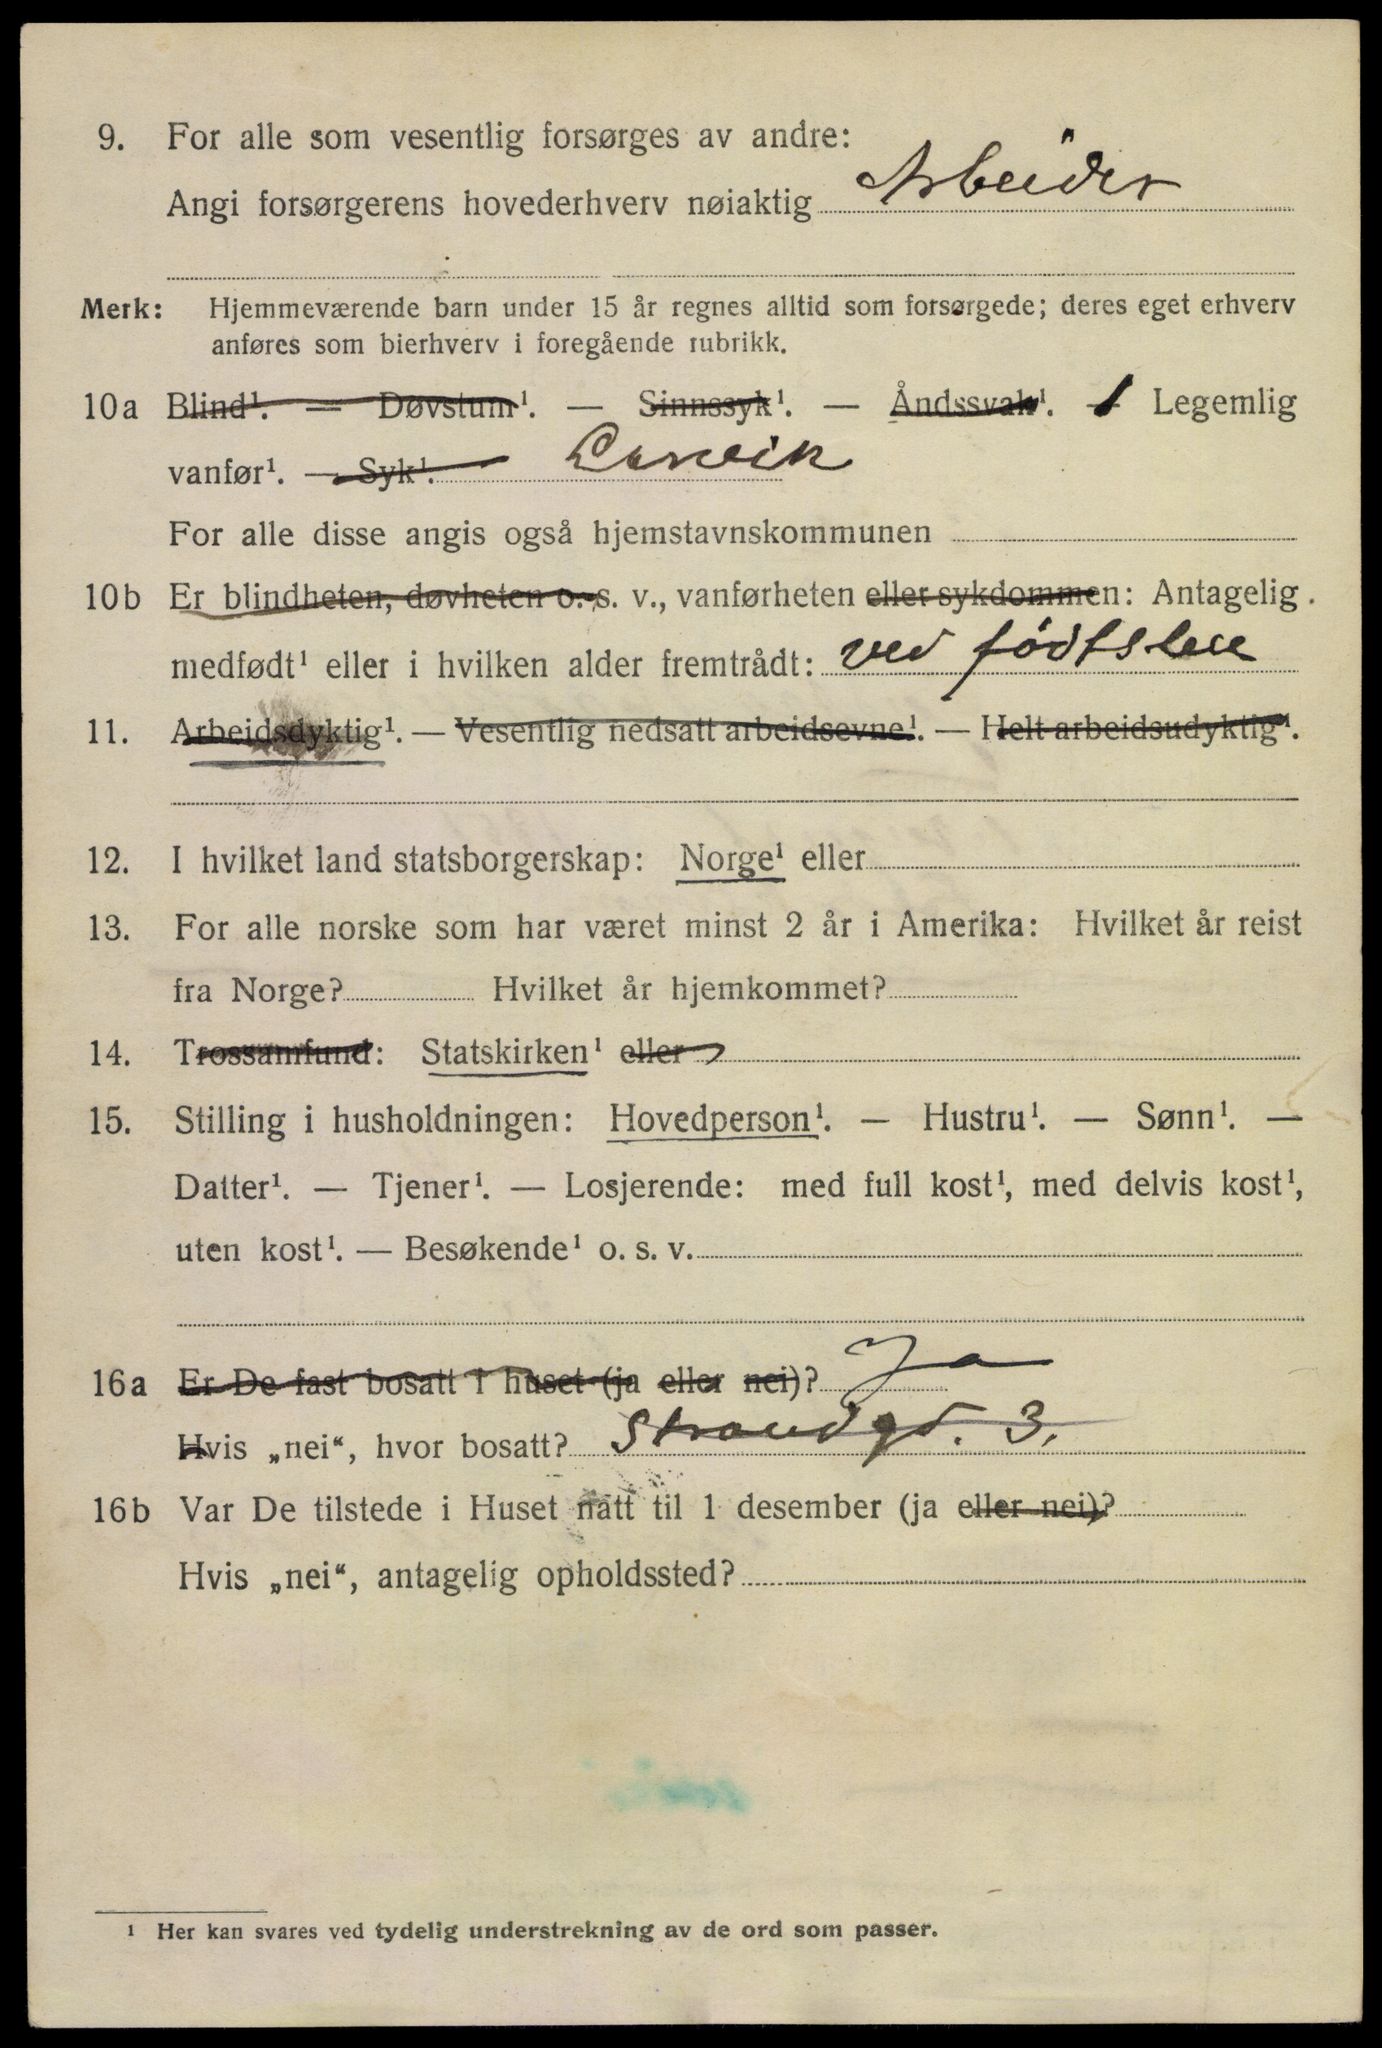 9. For alle som vesentlig forsørges av andre:
Angi forsørgerens hovederhverv nøiaktig Arbeider
Merk: Hjemmeværende barn under 15 år regnes alltid som forsørgede; deres eget erhverv
anføres som bierhverv i foregående rubrikk.
10a Blind¹. — Døvstum¹. — Sinnssyk¹. — Åndssvak¹. — Legemlig
vanfør¹. — Syk¹. Larvik
For alle disse angis også hjemstavnskommunen
10b Er blindheten, døvheten o. s. v., vanførheten eller sykdommen: Antagelig
medfødt¹ eller i hvilken alder fremtrådt: ved
11. Arbeidsdyktig¹. — Vesentlig nedsatt arbeidsevne¹. — Helt arbeidsudyktig¹.
12. I hvilket land statsborgerskap: Norge¹ eller
13. For alle norske som har været minst 2 år i Amerika: Hvilket år reist
fra Norge? Hvilket år hjemkommet?
14. Trossamfund: Statskirken¹ eller
15. Stilling i husholdningen: Hovedperson¹. — Hustru¹. — Sønn¹. —
Datter¹. — Tjener¹. — Losjerende: med full kost¹, med delvis kost¹,
uten kost¹. — Besøkende¹ o. s. v.
16a Er De fast bosatt i huset (ja eller nei)? Ja
Hvis „nei“, hvor bosatt? Strandgd. 3.
16b Var De tilstede i Huset natt til 1 desember (ja eller nei)?
Hvis „nei“, antagelig opholdssted?
¹ Her kan svares ved tydelig understrekning av de ord som passer.